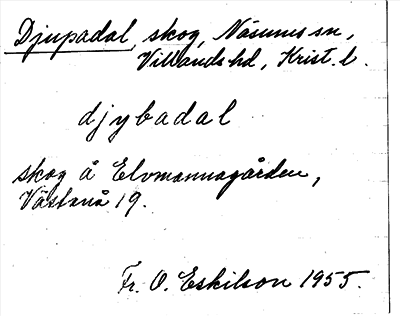 Djupadal, skog, Näsums sn,
Villands hd, Krist. l.
djybadal
skog å Elvmannagården,
Västanå 19.
Fr. O. Eskilson 1955.